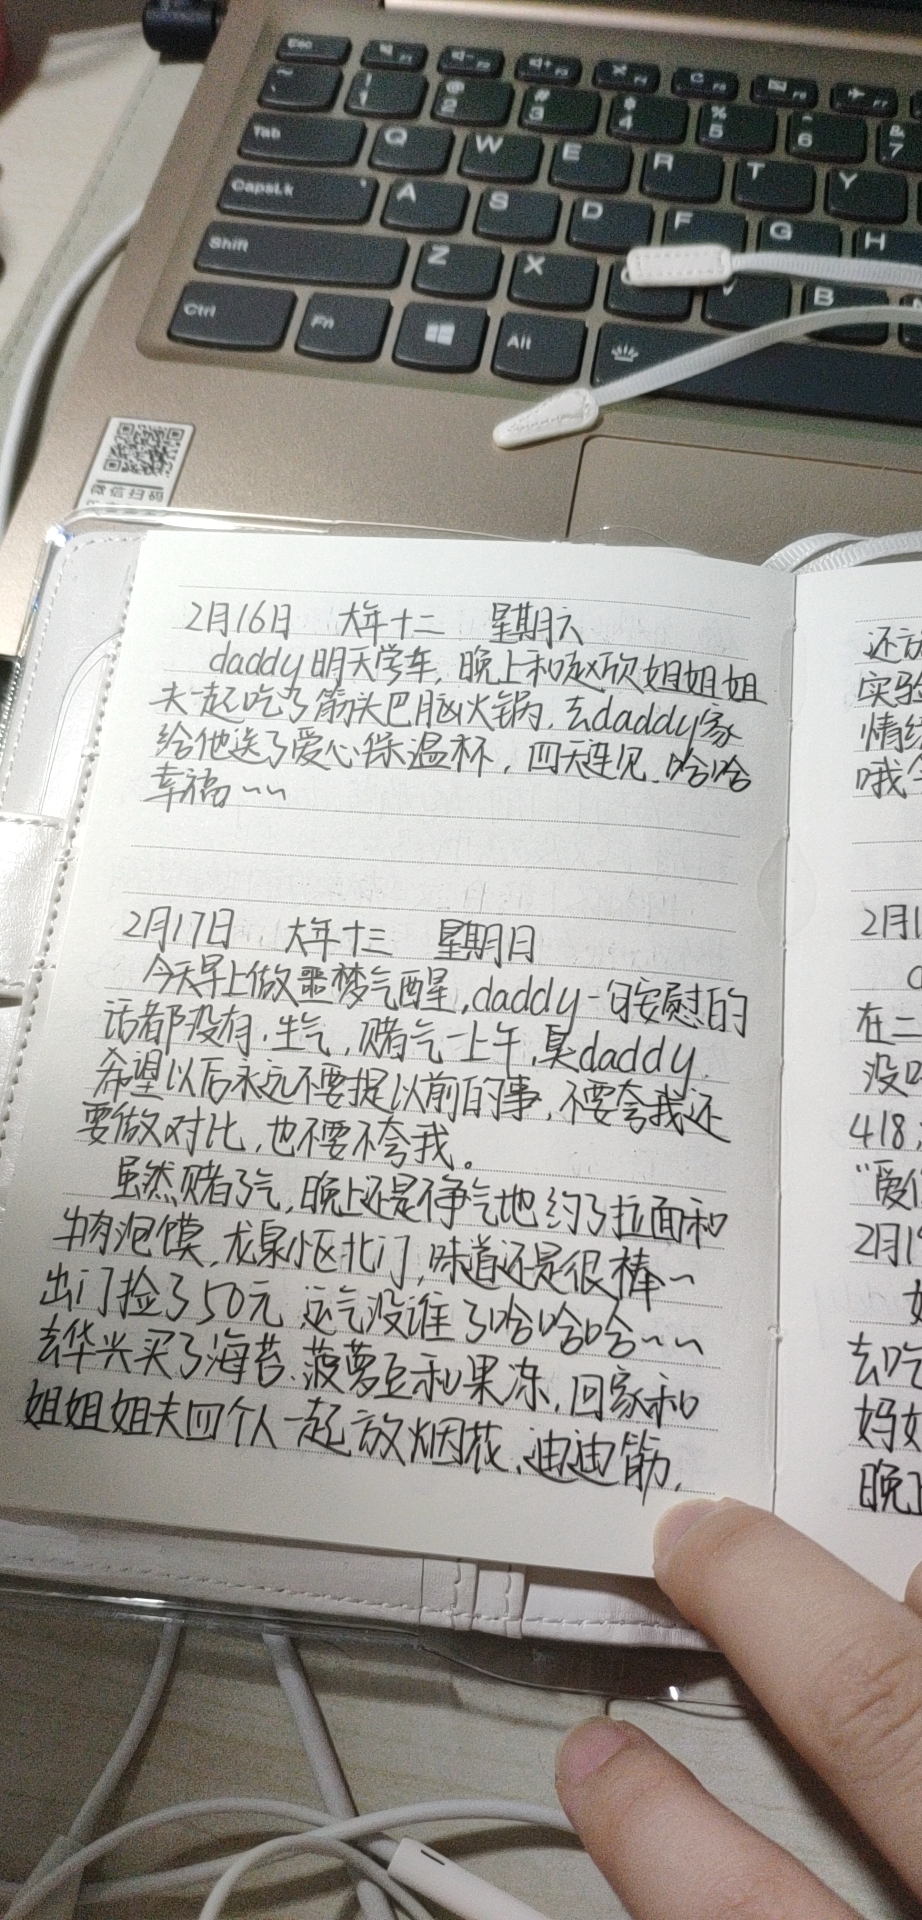 Esc F1 F2 F3 F4 F5 F6 F7
~ ` ! 1 @ 2 # 3 $ 4 % 5 ^ 6 & 7
Tab Q W E R T Y
CapsLk A S D F G H
Shift Z X V B
Ctrl Fn Alt
微信扫码
2月16日 大年十二 星期六
daddy明天学车，晚上和赵欣姐姐姐
夫一起吃了筋头巴脑火锅，去daddy家
给他送了爱心保温杯，四天连见，哈哈
幸福~~
2月17日 大年十三 星期日
今天早上做噩梦气醒，daddy一句安慰的
话都没有，生气，赌气一上午，臭daddy，
希望以后永远不要提以前的事，不要夸我还
要做对比，也不要不夸我。
虽然赌了气，晚上还是不争气地约了拉面和
牛肉泡馍，龙泉小区北门，味道还是很棒~
出门捡了50元，运气没谁了哈哈哈~~
去华兴买了海苔、菠萝豆和果冻，回家和
姐姐姐夫四个人一起放烟花，迪迪筋，
还
实验
情绪
哦
2月1
在二
没
418
"爱
2月19
去吃
妈
晚上